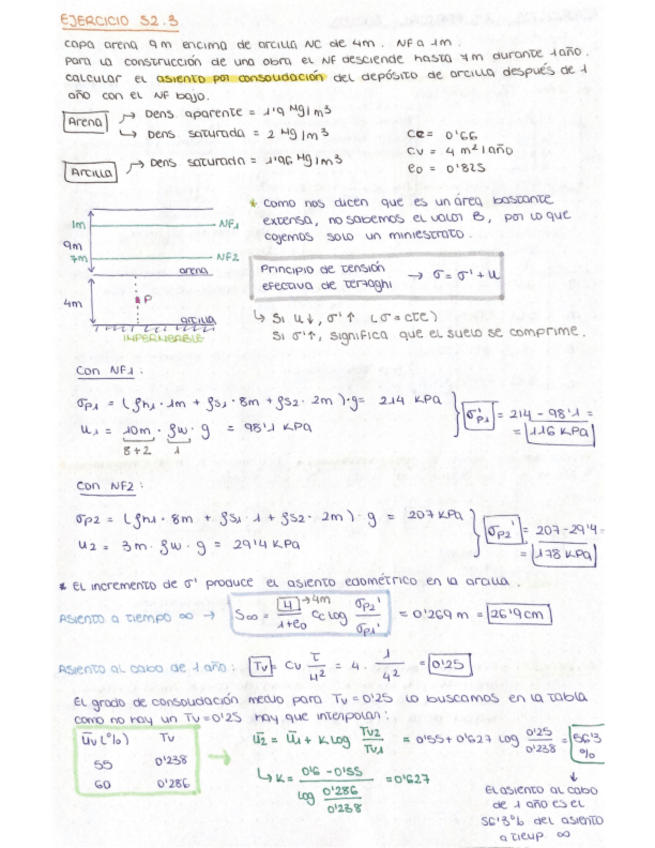 EJERCICIO S2.3
capa arena 9m encima de arcilla NC de 4m. NF a 1m.
Para la construcción de una obra el NF desciende hasta 7m durante 1 año.
calcular el asiento por consolidación del depósito de arcilla después de 1
año con el NF bajo.
Arena → Dens. aparente = 1'9 Mg/m³
↳ Dens. saturada = 2 Mg/m³
Arcilla → Dens saturada = 1'96 Mg/m³
cc = 0'66
cv = 4 m²/año
e0 = 0'825
1m NF1
9m
7m NF2
arena
4m P
arcilla
IMPERMEABLE
* como nos dicen que es un área bastante
extensa, no sabemos el valor B, por lo que
cojemos solo un miniestrato.
Principio de tensión
efectiva de terzaghi → σ = σ' + u
↳ Si u↓, σ'↑ (σ = cte)
Si σ'↑, significa que el suelo se comprime.
Con NF1:
σp1 = (ρh1 · 1m + ρs1 · 8m + ρs2 · 2m) · g = 214 kPa
u1 = 10m · ρw · g = 98'1 kPa
8+2 1
σp1' = 214 - 98'1 =
= 116 kPa
Con NF2:
σp2 = (ρh1 · 8m + ρs1 · 1 + ρs2 · 2m) · g = 207 kPa
u2 = 3m · ρw · g = 29'4 kPa
σp2' = 207 - 29'4 =
= 178 kPa
* El incremento de σ' produce el asiento edométrico en la arcilla.
Asiento a tiempo ∞ → S∞ = H/(1+e0) Cc log σp2'/σp1' = 0'269 m = 26'9cm
→ 4m
Asiento al cabo de 1 año: Tv = Cv t/H² = 4 · 1/4² = 0'25
El grado de consolidación medio para Tv = 0'25 lo buscamos en la tabla
como no hay un Tv = 0'25 hay que interpolar:
Uv (%) Tv
55 0'238
60 0'286
→ U2 = U1 + K log Tv2/Tv1 = 0'55 + 0'627 log 0'25/0'238 = 56'3
%
↳ K = (0'6 - 0'55)/(log 0'286/0'238) = 0'627
El asiento al cabo
de 1 año es el
56'3% del asiento
a tiemp ∞